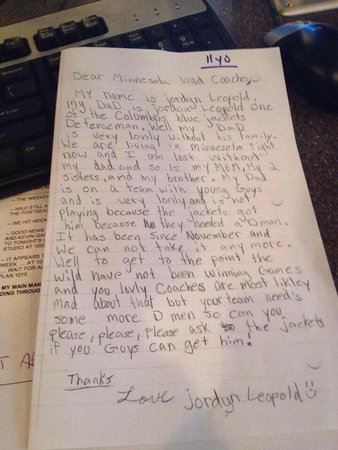 11yo
Dear Minnesota Wild Coaches,
My name is jordyn Leopold,
my DaD is jordan Leopold one
of the Columbus blue jackets
Defenseman. Well my DaD
is very lonly without his family.
We are living in Minnesota right
now and I am lost without
my dad and so is my MoM, My 2
sisters, and my brother. My Dad
is on a team with young Guys
and is very lonly and is not
playing because the jackets got
him because they needed a D man.
It has been since November and
we can not take it any more.
Well to get to the point the
wild have not been winning Games
and you lovly Coaches are most likley
mad about that but your team need's
some more D men so can you
please, please, Please ask the jackets
if you Guys can get him!
Thanks
Love jordyn Leopold
THE WEEKEN
WILD
THE POSTSEA
WE HIT HOCK
GOOD NEWS
AND KEVIN GA
TO TONIGHT'S
STUDIO AT 129
IT APPEARS T
WEEK ... AT 10
WAIT FOR A
PLAN 1015
MY MAIN MAN
GOING THROUGH